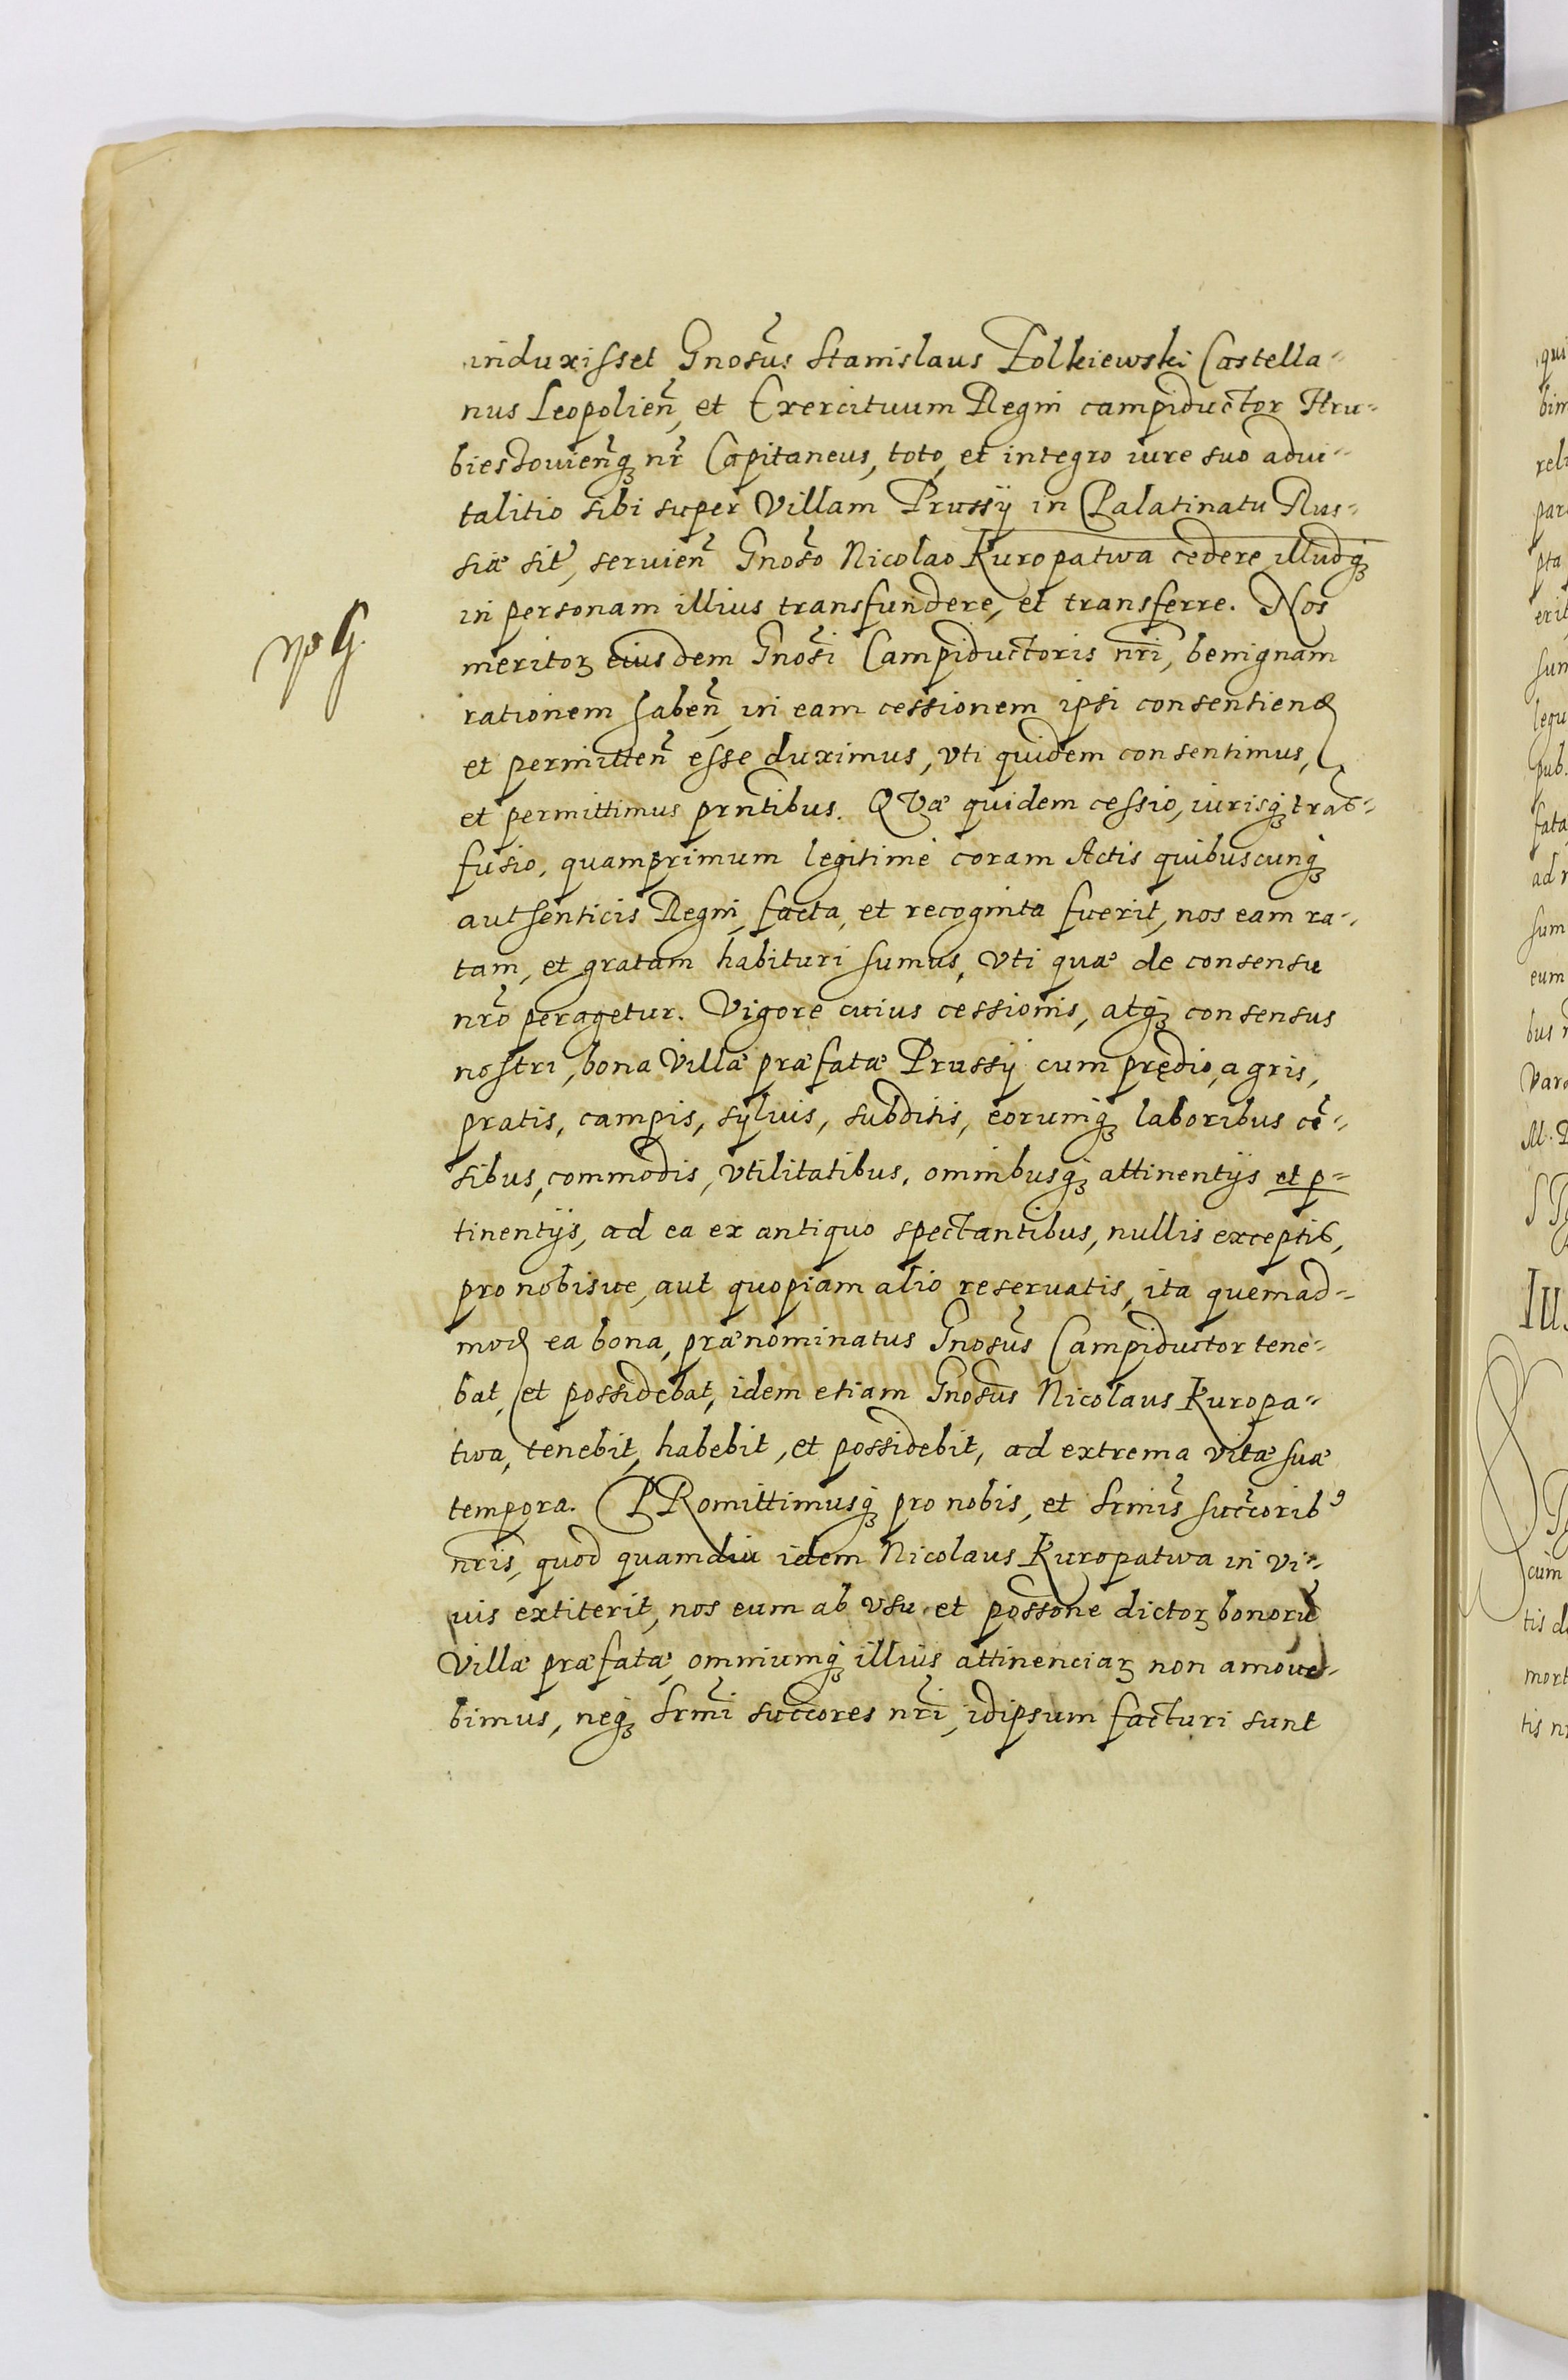 induxisset Gnosūs Stanislaus Żolkiewski Castella-
nus Leopolień, et Exercituum Regni campiductor Hru-
biesзouieńq̨ nr̃ Capitaneus, toto, et integro iure suo advi-
talitio sibi super Villam Prussÿ in Palatinatu Rus-
siæ sit̃, servień Gnosō Nicolao Kuropatwa cedere illudq̨
in personam illius transfundere, et transferre. Nos
meritoꝝ eiusdem Gnosī Campiductoris nr̃i, benignam
rationem habeñ, in eam cessionem ipsi consentienꝺ
et permitteñ esse duximus, vti quidem consentimus,
et permittimus prntibus. QVæ quidem cessio, iurisq̨ trās-
fusio, quamprimum legitimè coram Actis quibuscunq̨
authenticis Regni, facta, et recognita fuerit, nos eam ra-
tam, et gratam habituri sumus, vti quæ de consensu
nr̃o peragetur. Vigore cuius cessionis, atq̨ consensus
nostri, bona Villæ præfatæ Prussÿ cum prędio, agris,
pratis, campis, sÿluis, subditis, eorumq̨ laboribus cē-
sibus, commodis, vtilitatibus, omnibusq̨ attinentÿs et p-
tinentÿs, ad ea ex antiquo spectantibus, nullis exceptis,
pro nobisue, aut quopiam alio reseruatis, ita quemad-
moꝺ ea bona, prænominatus Gnosūs Campiductor tene-
bat, et possidebat, idem etiam Gnosūs Nicolaus Kuropa-
twa, tenebit, habebit, et possidebit, ad extrema vitæ suæ
tempora. PRomittimusq̨ pro nobis, et Srmīs succ̄orib⁹
nr̃is, quod quamdiu idem Nicolaus Kuropatwa in vi-
uis extiterit, nos eum ab vsu, et poss̄one dictoꝝ bonorū
Villæ præfatæ, omniumq̨ illius attinenciaꝝ non amoue-
bimus, neq̨ Srmī succ̄ores nr̃i, idipsum facturi sunt